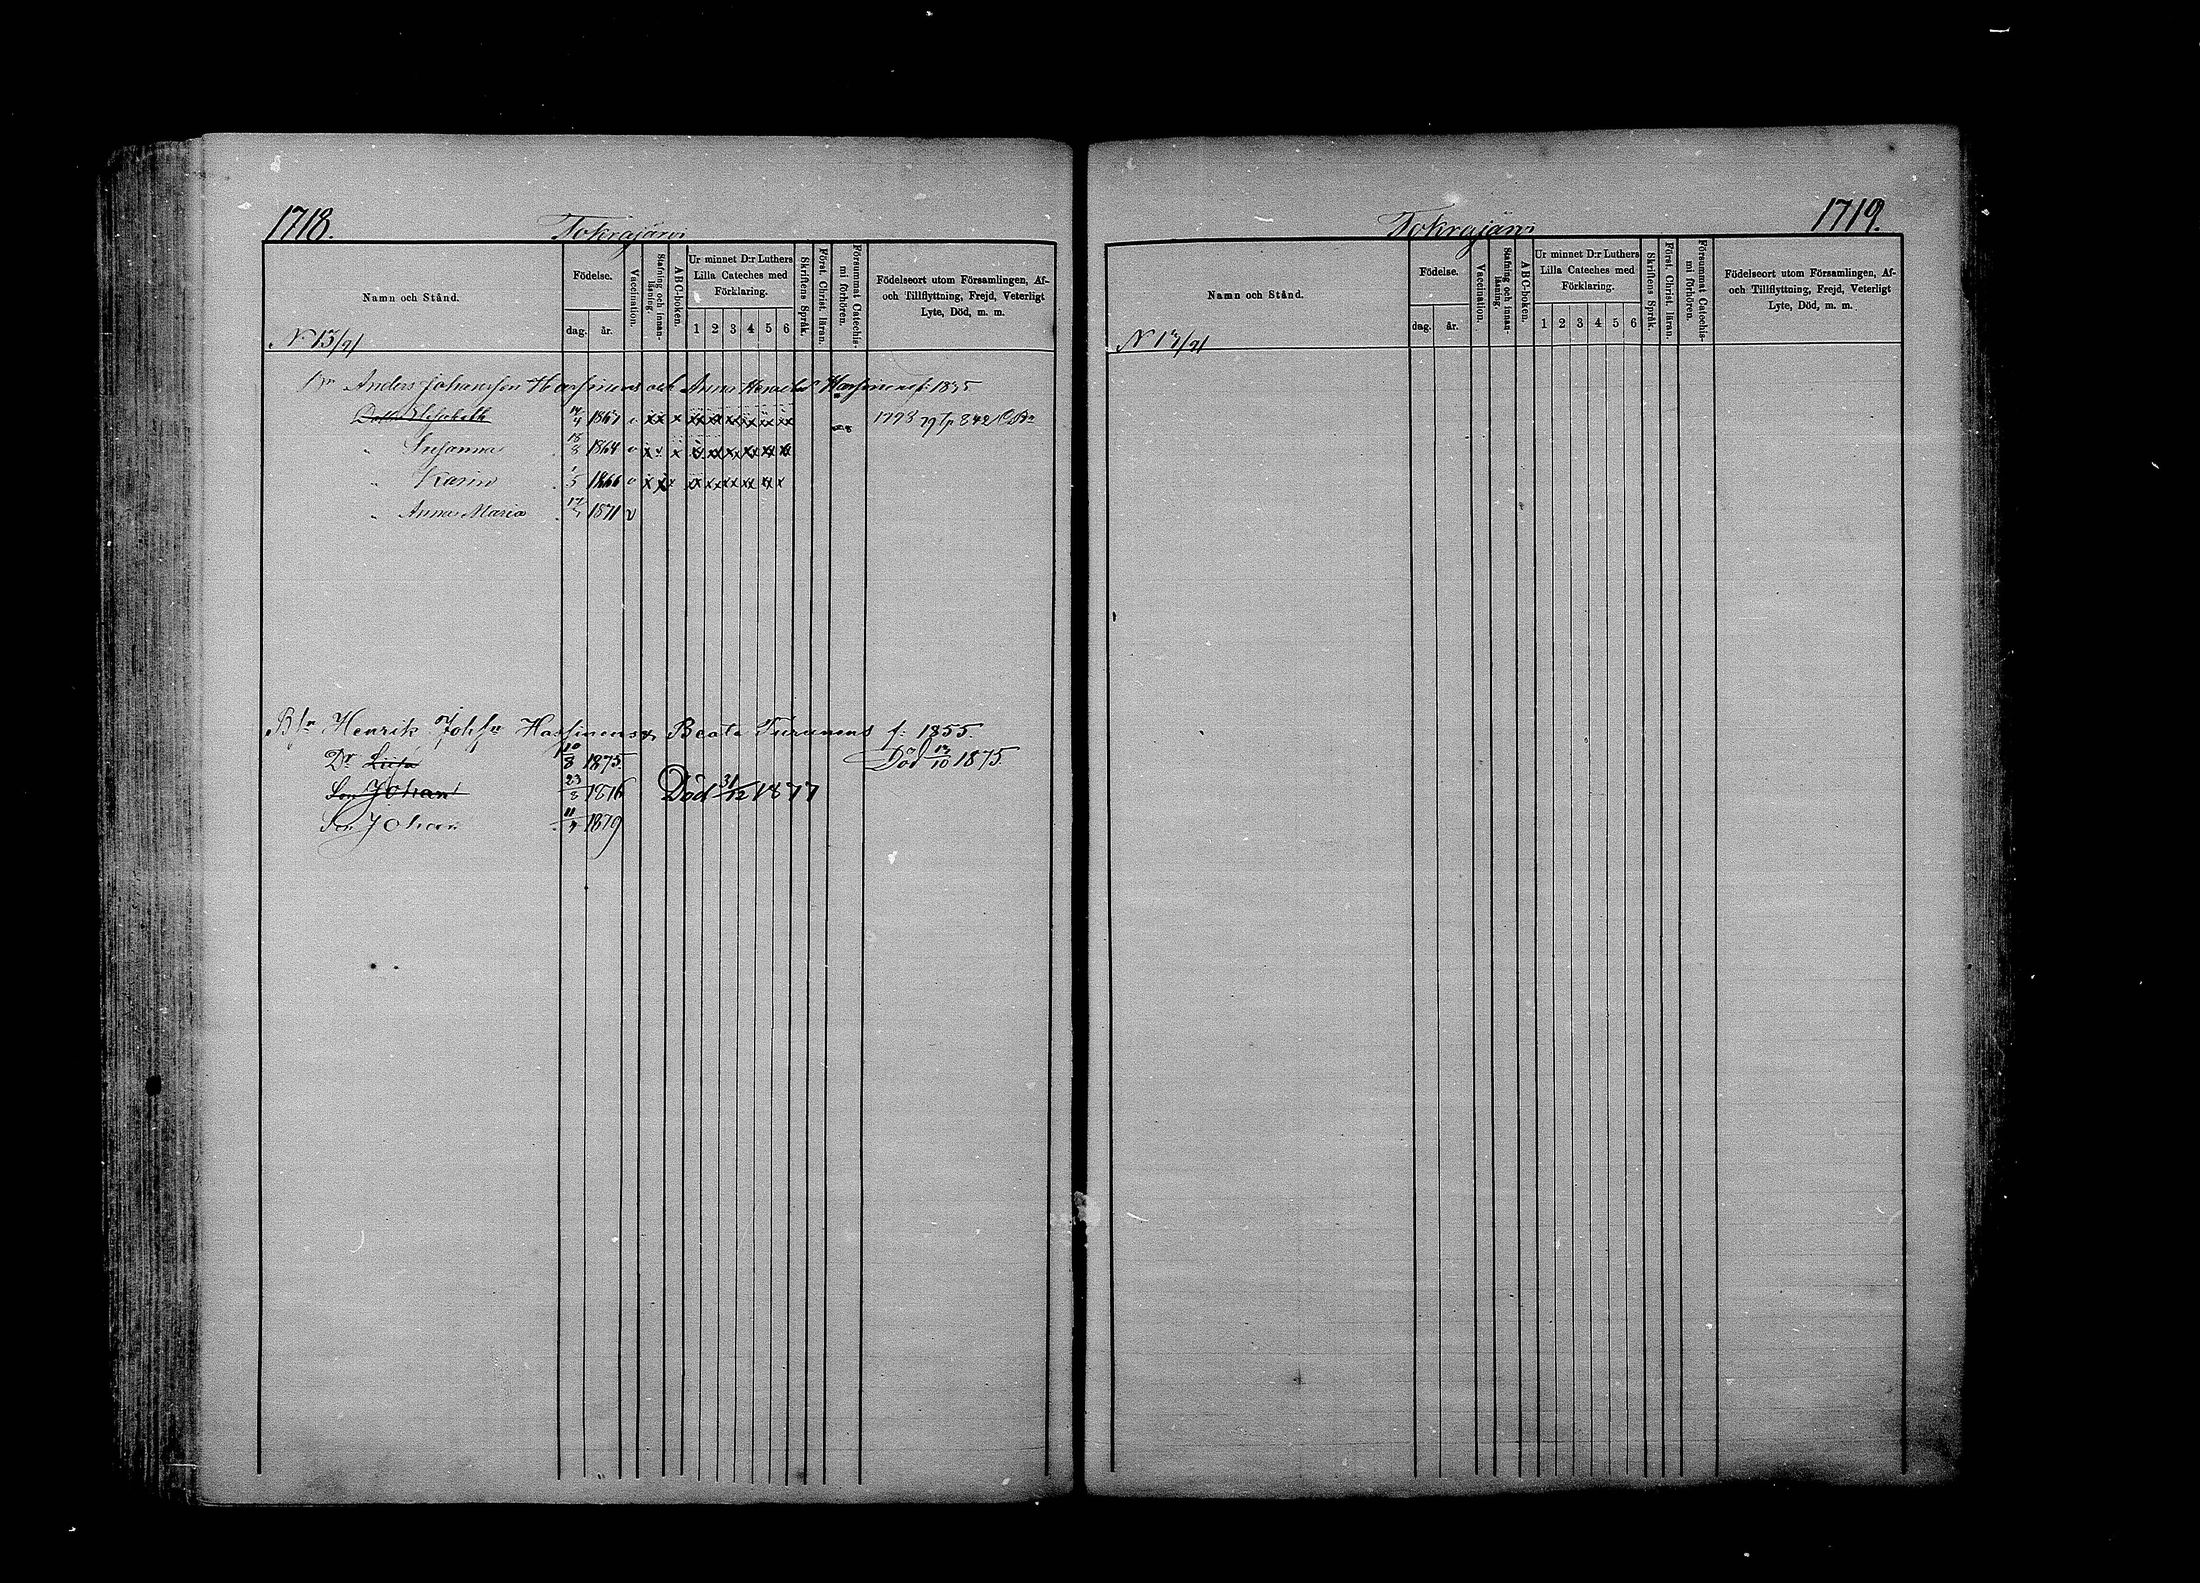 1718.
Tokrajärvi
Namn och Stånd.
Födelse.
dag.
år.
Vaccination.
Stafning och innan-läsning.
ABC-boken.
Ur minnet D:r Luthers Lilla Cateches med Förklaring.
1 2 3 4 5 6
Skriftens Språk.
Först. Christ. läran.
Försummat Catechis-mi förhören.
Födelseort utom Församlingen, Af- och Tillflyttning, Frejd, Veterligt Lyte, Död, m. m.
N 13/91
Anders Johansson Hassinens och Anna Hassinens f: 1835
1861
Susanna 18/8 1864
" Karin 1/5 1866
" Anna Maria 1871
Henrik Johsn Hassinens & Beata Turunens f: 1855.
Dr Lisa 10/8 1875. Död 13/10 1875
Son Johan 23/8 1876 Död 31/12 1877
Son Johan 1879
1719.
Tokrajärvi
Namn och Stånd.
Födelse.
dag.
år.
Vaccination.
Stafning och innan-läsning.
ABC-boken.
Ur minnet D:r Luthers Lilla Cateches med Förklaring.
1 2 3 4 5 6
Skriftens Språk.
Först. Christ. läran.
Försummat Catechis-mi förhören.
Födelseort utom Församlingen, Af- och Tillflyttning, Frejd, Veterligt Lyte, Död, m. m.